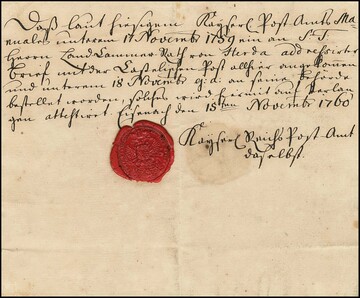 Daß laut hiesigem Kayserl. Post-Amts Ma-
nualis unterm 17 Novembr 1759 ein an S. T.
Herrn Land Cammer Rath von Herda addressirter
brief mit der Casselischen Post allhier angekommen
und unterm 18 Novembr a. d. an seine behörde
bestellet worden, solches wird hiermit auf Verlan-
gen attestiret Eisenach den 18ten Novembr 1760
Kayserl Reichs Post-Amt
daselbst.